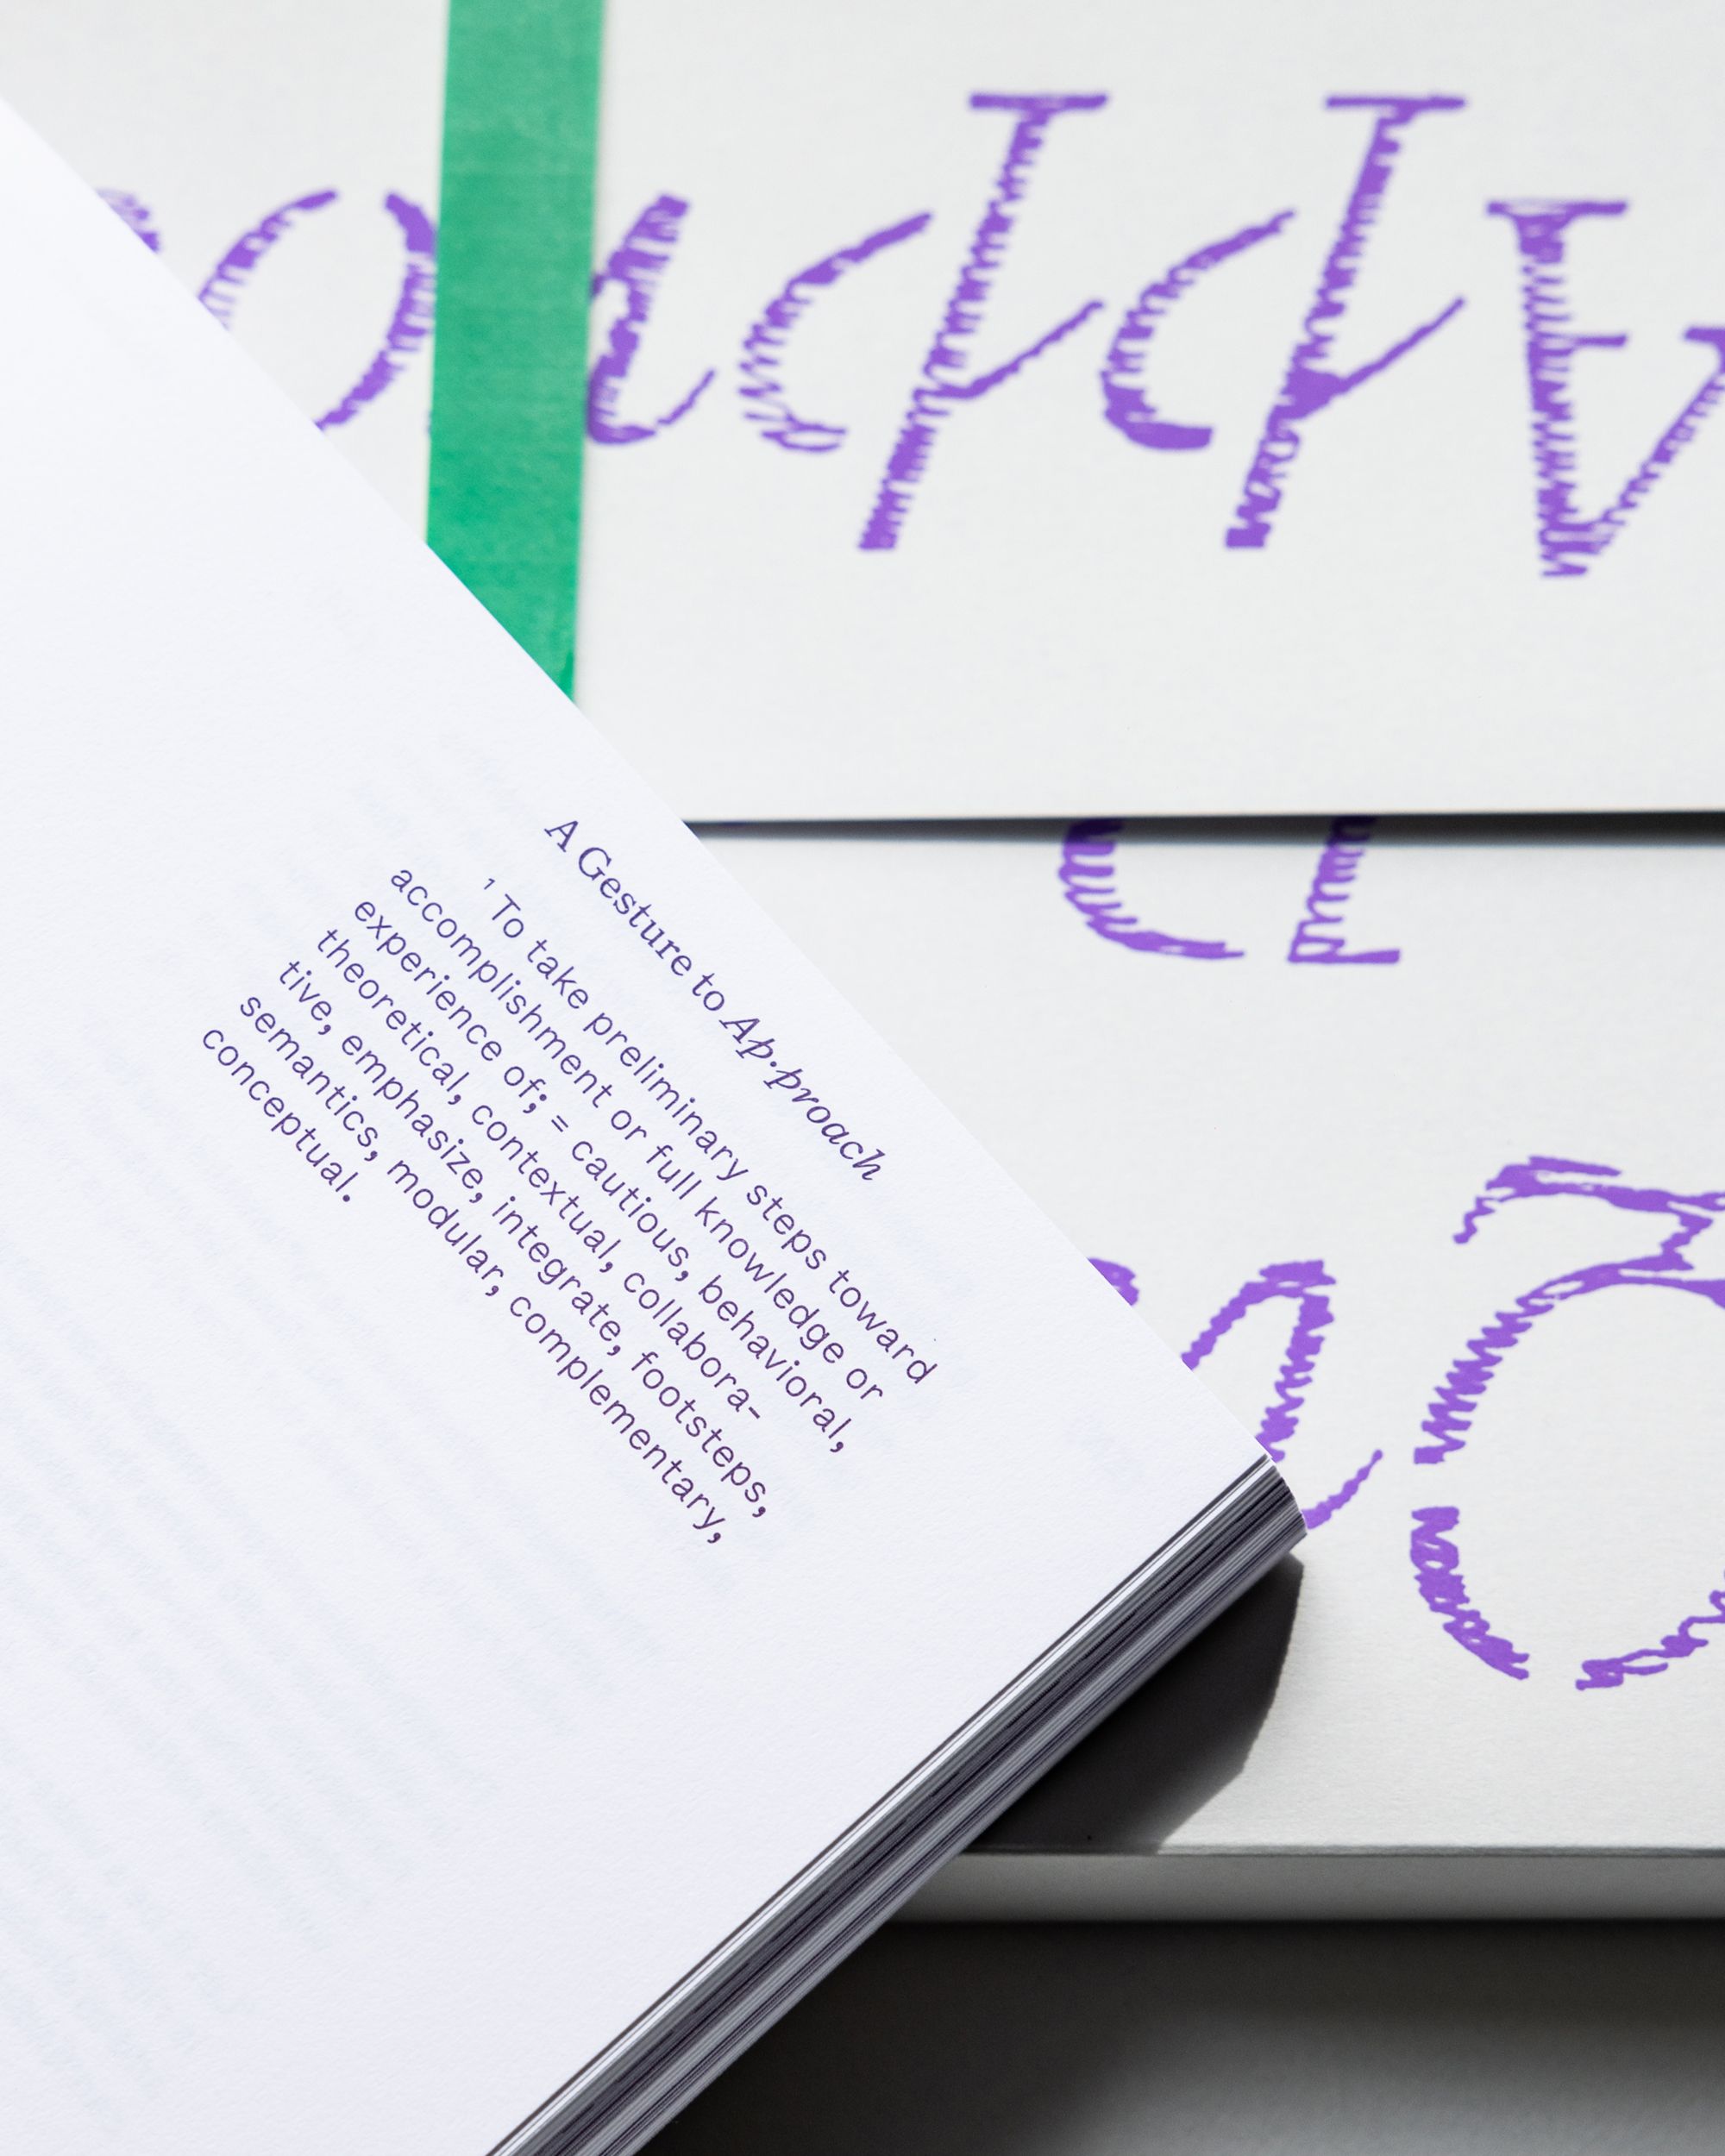 A Gesture to Ap·proach
¹ To take preliminary steps toward
accomplishment or full knowledge or
experience of; = cautious, behavioral,
theoretical, contextual, collabora-
tive, emphasize, integrate, footsteps,
semantics, modular, complementary,
conceptual.